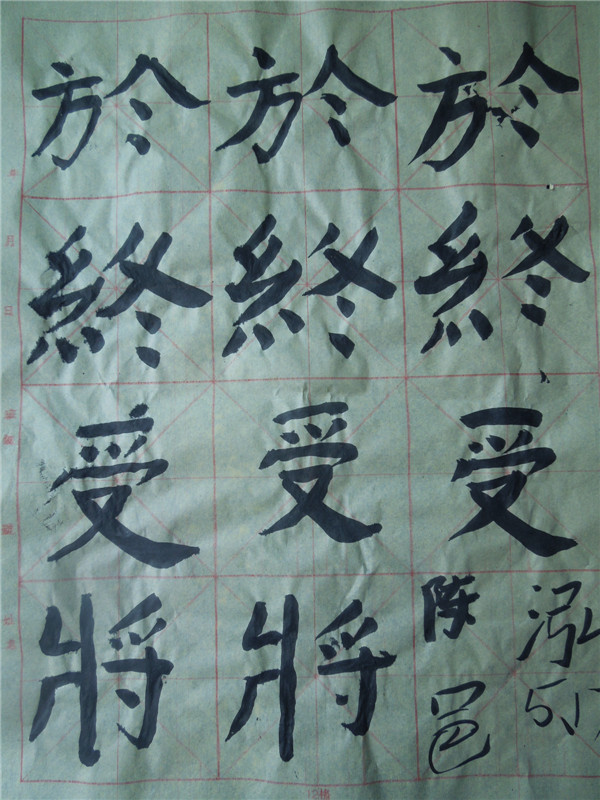 於於於
終終終
受受受
將將陈邑泓